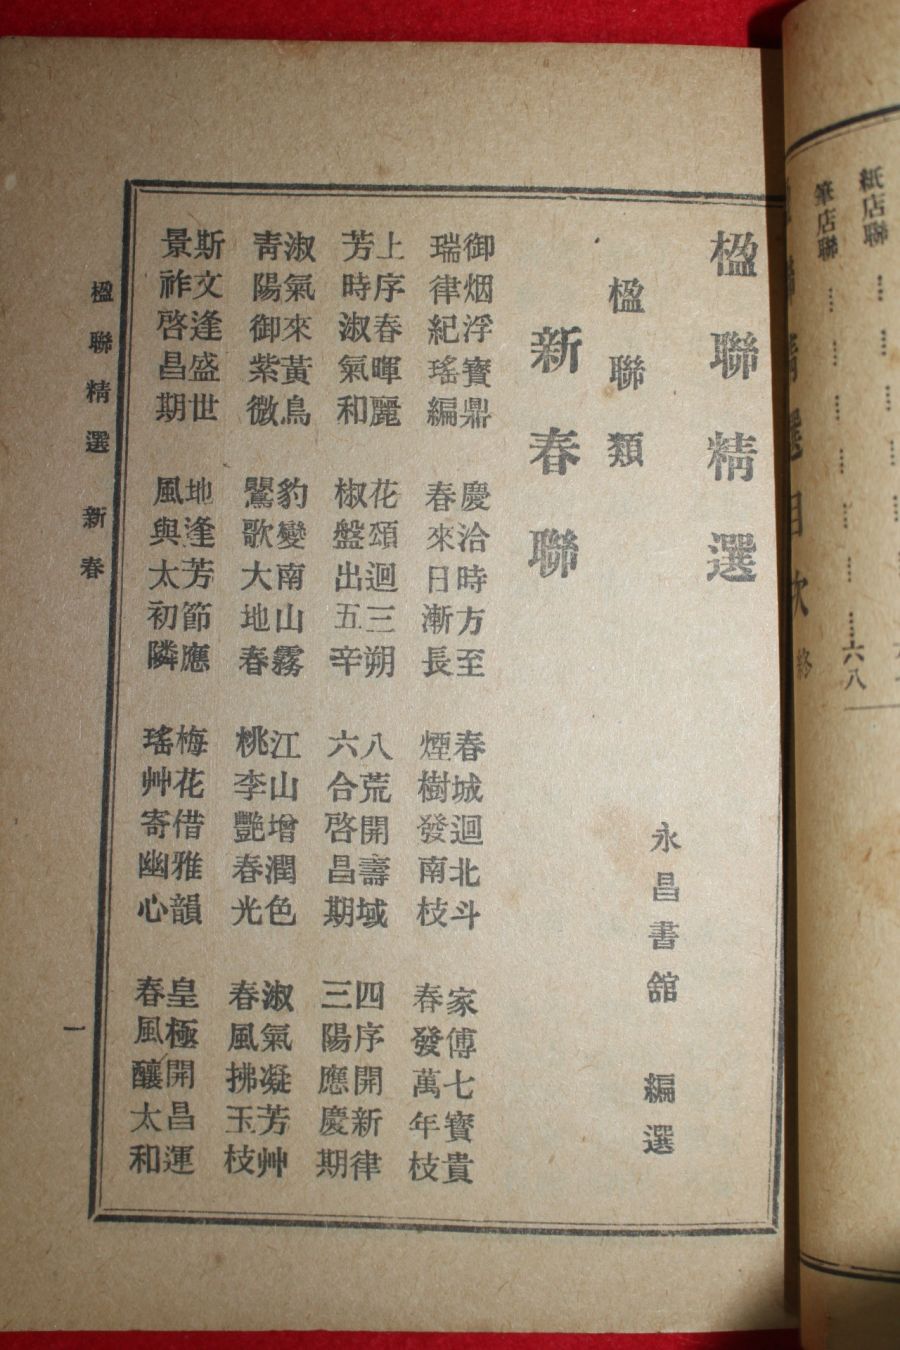 紙店聯 六八
筆店聯
目次 終
楹聯精選
永昌書舘 編選
楹聯類
新春聯
御烟浮寶鼎 慶洽時方至 春城迴北斗 家傅七寳貴
瑞律紀瑤編 春來日漸長 煙樹發南枝 春發萬年枝
上序春暉麗 花頌迴三朔 八荒開壽域 四序開新律
芳時淑氣和 椒盤出五辛 六合啓昌期 三陽應慶期
淑氣來黃鳥 豹變南山霧 江山增潤色 淑氣凝芳艸
靑陽御紫微 鸎歌大地春 桃李艷春光 春風拂玉枝
斯文逢盛世 地逢芳節應 梅花借雅韻 皇極開昌運
景祚啓昌期 風與太初隣 瑤艸寄幽心 春風釀太和
楹聯精選 新春
一